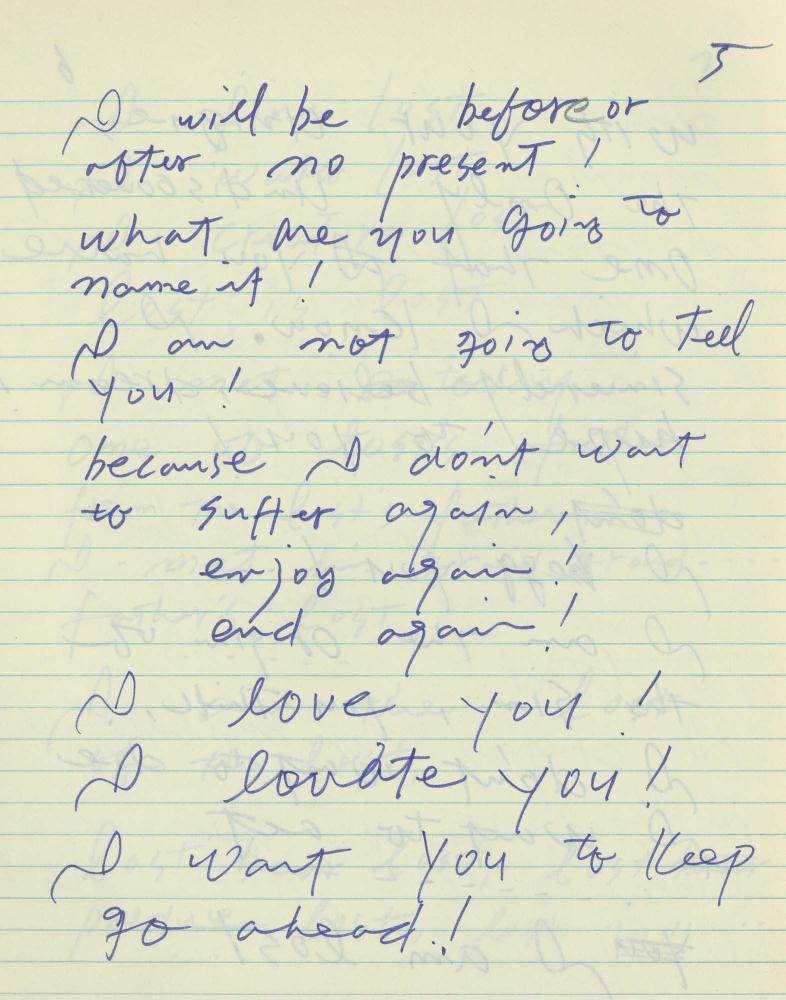 5
I will be before or
after no present !
what are you going to
name it !
I am not going to tell
you !
because I don't want
to suffer again,
enjoy again !
end again !
I love you !
I lovate you !
I want you to keep
go ahead !